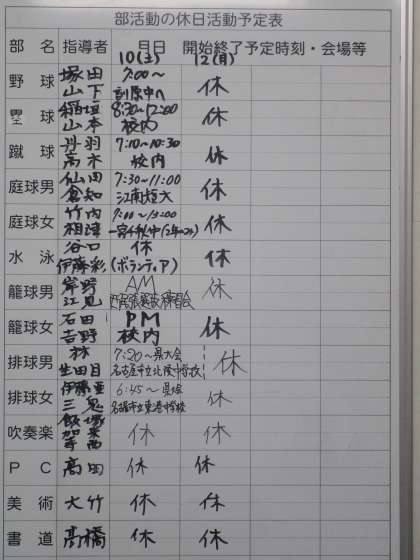 部活動の休日活動予定表
部 名 指導者 月日 開始終了予定時刻・会場等
10(土) 12(月)
野 球 塚田 7:00～ 休
山下
塁 球 稲垣 8:30～12:00 休
山本 校内
蹴 球 丹羽 7:10～10:30 休
高木 校内
庭球男 仙田 7:30～11:00 休
倉知 江南短大
庭球女 竹内 休
相澤
水 泳 谷口 休 休
伊藤彩 (ボランティア)
籠球男 岸野 AM 休
江見
籠球女 石田 PM 休
吉野 校内
排球男 林 7:20～県大会 休
生田目 名古屋市立北陵中学校
排球女 伊藤亜 6:45～ 県大会 休
三鬼 名古屋市立東港中学校
吹奏楽 飯塚 休 休
ＰＣ 高田 休 休
美 術 大竹 休 休
書 道 高橋 休 休